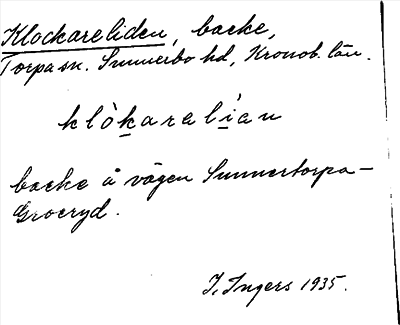 Klockareliden, backe,
Torpa sn. Sunnerbo hd, Kronob. län.
klòkarelían
backe å vägen Sunnertorpa-
Groeryd.
I. Ingers 1935.